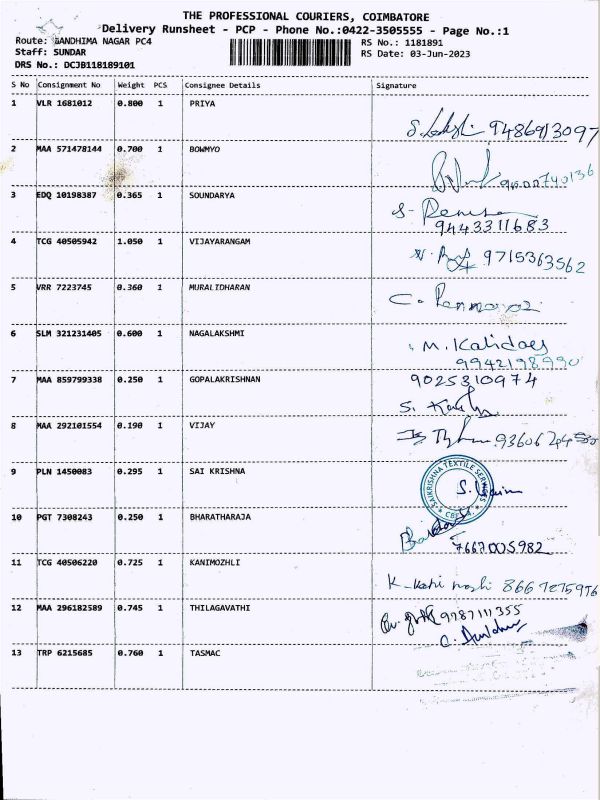 THE PROFESSIONAL COURIERS, COIMBATORE
Delivery Runsheet - PCP - Phone No.:0422-3505555 - Page No.:1
Route: GANDHIMA NAGAR PC4 RS No.: 1181891
Staff: SUNDAR RS Date: 03-Jun-2023
DRS No.: DCJB118189101
S No Consignment No Weight PCS Consignee Details Signature
1 VLR 1681012 0.800 1 PRIYA
9486913097
2 MAA 571478144 0.700 1 BOWMYO
3 EDQ 10198387 0.365 1 SOUNDARYA
9443311683
4 TCG 40505942 1.050 1 VIJAYARANGAM
9715363562
5 VRR 7223745 0.360 1 MURALIDHARAN
6 SLM 321231405 0.600 1 NAGALAKSHMI
M. Kalidoes
9942198990
7 MAA 859799338 0.250 1 GOPALAKRISHNAN 9025310974
8 MAA 292101554 0.190 1 VIJAY
9 PLN 1450083 0.295 1 SAI KRISHNA
SAIKRISHNA TEXTILE SERVICES
10 PGT 7308243 0.250 1 BHARATHARAJA
7667005982
11 TCG 40506220 0.725 1 KANIMOZHLI
12 MAA 296182589 0.745 1 THILAGAVATHI
13 TRP 6215685 0.760 1 TASMAC